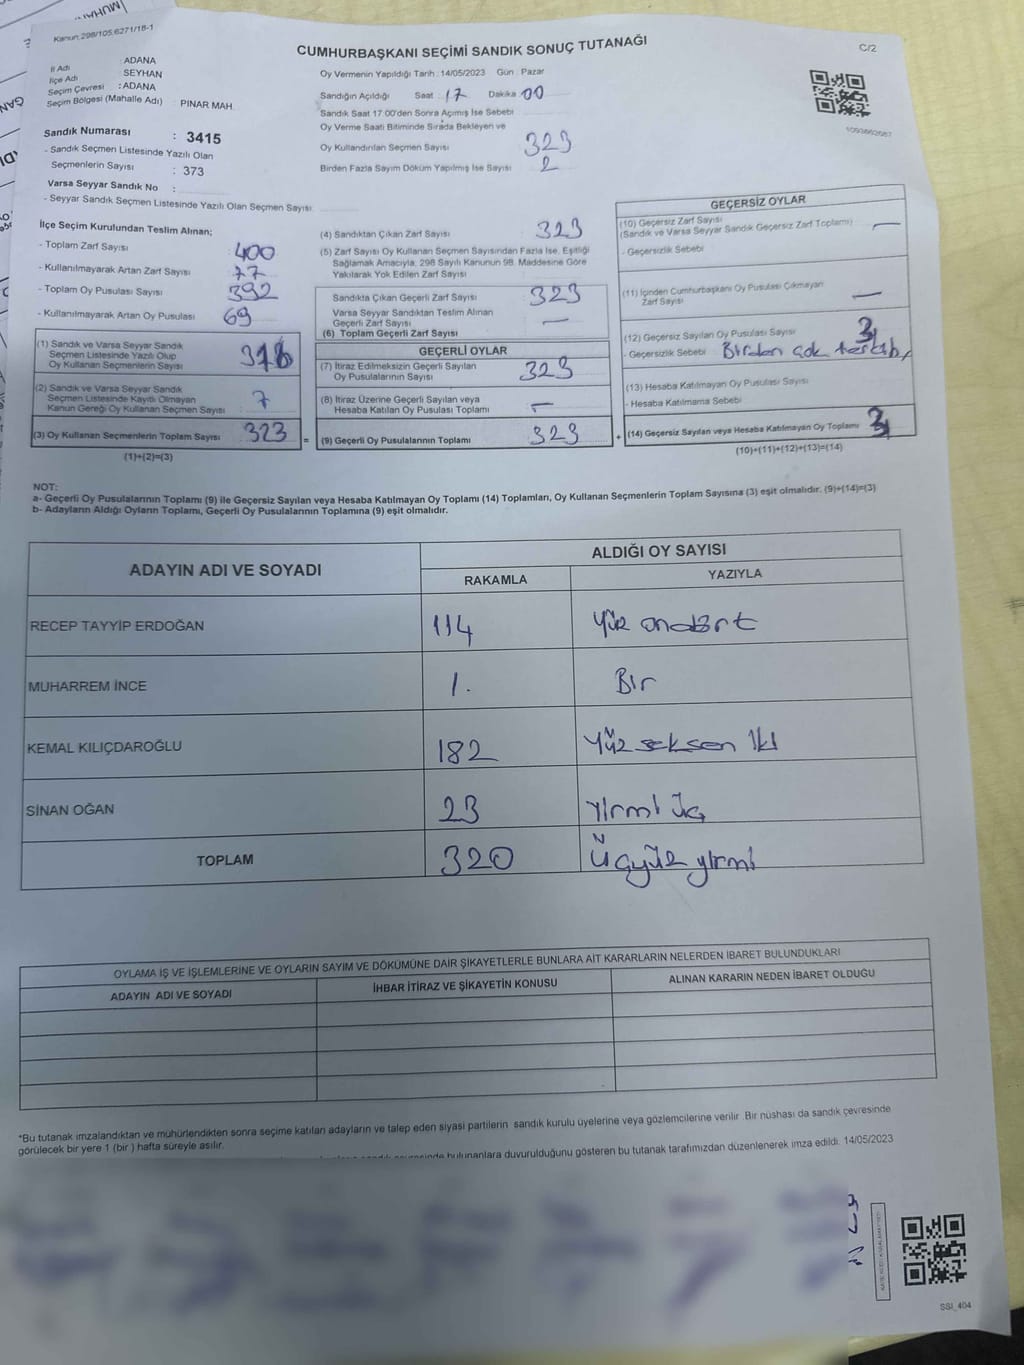 Kanun 298/105,6271/18-1
CUMHURBAŞKANI SEÇİMİ SANDIK SONUÇ TUTANAĞI
C/2
İl Adı : ADANA
İlçe Adı SEYHAN
Seçim Çevresi : ADANA
Seçim Bölgesi (Mahalle Adı) : PINAR MAH.
Sandık Numarası : 3415
- Sandık Seçmen Listesinde Yazılı Olan
Seçmenlerin Sayısı : 373
Varsa Seyyar Sandık No :
- Seyyar Sandık Seçmen Listesinde Yazılı Olan Seçmen Sayısı:
Oy Vermenin Yapıldığı Tarih : 14/05/2023 Gün : Pazar
Sandığın Açıldığı Saat : 17 Dakika 00
Sandık Saat 17.00'den Sonra Açılmış İse Sebebi
Oy Verme Saati Bitiminde Sırada Bekleyen ve
Oy Kullandırılan Seçmen Sayısı 323
Birden Fazla Sayım Döküm Yapılmış İse Sayısı 2
1093662687
İlçe Seçim Kurulundan Teslim Alınan;
- Toplam Zarf Sayısı 400
- Kullanılmayarak Artan Zarf Sayısı 77
- Toplam Oy Pusulası Sayısı 392
- Kullanılmayarak Artan Oy Pusulası 69
(1) Sandık ve Varsa Seyyar Sandık
Seçmen Listesinde Yazılı Olup
Oy Kullanan Seçmenlerin Sayısı
(2) Sandık ve Varsa Seyyar Sandık
Seçmen Listesinde Kayıtlı Olmayan
Kanun Gereği Oy Kullanan Seçmen Sayısı 7
(3) Oy Kullanan Seçmenlerin Toplam Sayısı 323 =
(1)+(2)=(3)
(4) Sandıktan Çıkan Zarf Sayısı 323
(5) Zarf Sayısı Oy Kullanan Seçmen Sayısından Fazla İse, Eşitliği
Sağlamak Amacıyla, 298 Sayılı Kanunun 98. Maddesine Göre
Yakılarak Yok Edilen Zarf Sayısı
Sandıkta Çıkan Geçerli Zarf Sayısı 323
Varsa Seyyar Sandıktan Teslim Alınan
Geçerli Zarf Sayısı —
(6) Toplam Geçerli Zarf Sayısı
GEÇERLİ OYLAR
(7) İtiraz Edilmeksizin Geçerli Sayılan
Oy Pusulalarının Sayısı 323
(8) İtiraz Üzerine Geçerli Sayılan veya
Hesaba Katılan Oy Pusulası Toplamı —
(9) Geçerli Oy Pusulalarının Toplamı 323 +
GEÇERSİZ OYLAR
(10) Geçersiz Zarf Sayısı
(Sandık ve Varsa Seyyar Sandık Geçersiz Zarf Toplamı) —
- Geçersizlik Sebebi
(11) İçinden Cumhurbaşkanı Oy Pusulası Çıkmayan
Zarf Sayısı —
(12) Geçersiz Sayılan Oy Pusulası Sayısı 3
- Geçersizlik Sebebi Birden çok tercih
(13) Hesaba Katılmayan Oy Pusulası Sayısı
- Hesaba Katılmama Sebebi
(14) Geçersiz Sayılan veya Hesaba Katılmayan Oy Toplamı 3
(10)+(11)+(12)+(13)=(14)
NOT:
a- Geçerli Oy Pusulalarının Toplamı (9) ile Geçersiz Sayılan veya Hesaba Katılmayan Oy Toplamı (14) Toplamları, Oy Kullanan Seçmenlerin Toplam Sayısına (3) eşit olmalıdır. (9)+(14)=(3)
b- Adayların Aldığı Oyların Toplamı, Geçerli Oy Pusulalarının Toplamına (9) eşit olmalıdır.
ADAYIN ADI VE SOYADI
ALDIĞI OY SAYISI
RAKAMLA YAZIYLA
RECEP TAYYİP ERDOĞAN 114 Yüz ondört
MUHARREM İNCE 1. Bir
KEMAL KILIÇDAROĞLU 182 Yüz seksen iki
SİNAN OĞAN 23 Yirmi üç
TOPLAM 320 Üçyüz yirmi
OYLAMA İŞ VE İŞLEMLERİNE VE OYLARIN SAYIM VE DÖKÜMÜNE DAİR ŞİKAYETLERLE BUNLARA AİT KARARLARIN NELERDEN İBARET BULUNDUKLARI
ADAYIN ADI VE SOYADI İHBAR İTİRAZ VE ŞİKAYETİN KONUSU ALINAN KARARIN NEDEN İBARET OLDUĞU
*Bu tutanak imzalandıktan ve mühürlendikten sonra seçime katılan adayların ve talep eden siyasi partilerin sandık kurulu üyelerine veya gözlemcilerine verilir. Bir nüshası da sandık çevresinde
görülecek bir yere 1 (bir ) hafta süreyle asılır.
bulunanlara duyurulduğunu gösteren bu tutanak tarafımızdan düzenlenerek imza edildi. 14/05/2023
SSI_404